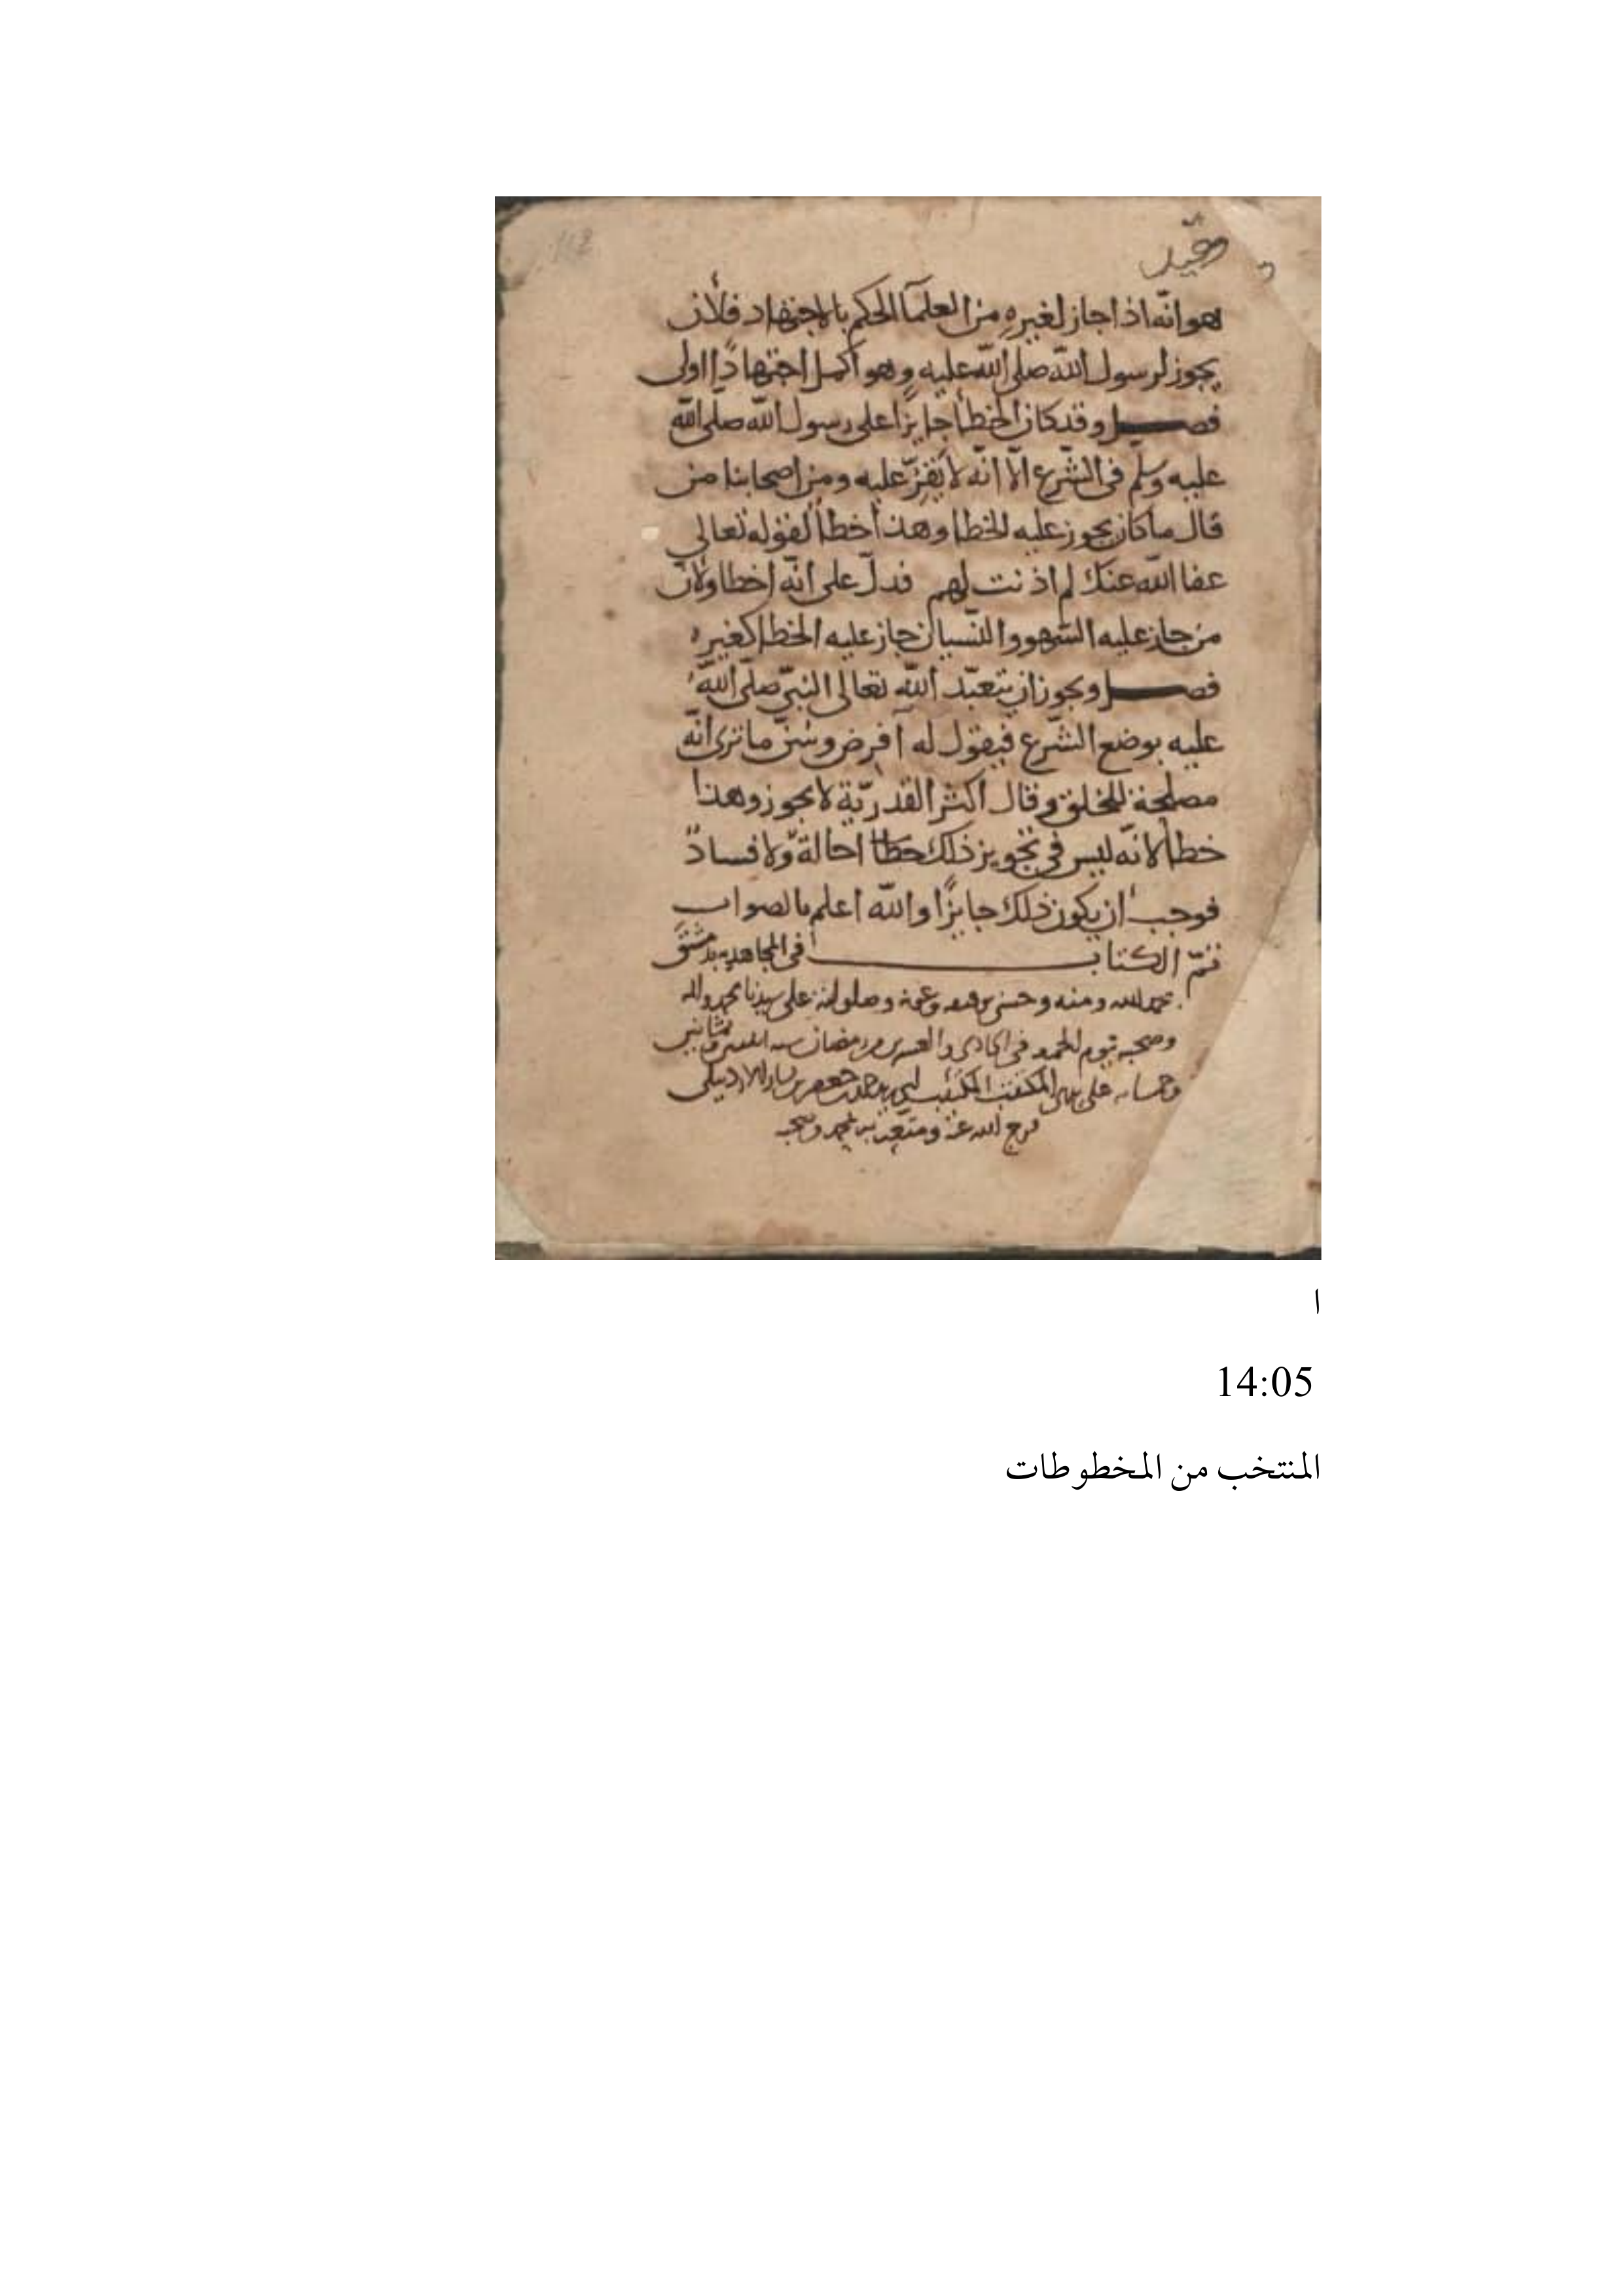 112
هو انّه اذا جاز لغيره من العلمآ الحكم بالاجتهاد فلأن
يجوز لرسول الله صلى الله عليه وهو أكمل اجتهادًا اولى
فصل وقد كان الخطأ جايزًا على رسول الله صلّى الله
عليه وسلّم في الشّرع الّا انّه لا يُقرّ عليه ومن اصحابنا من
قال ما كان يجوز عليه الخطا وهذا خطأ لقوله تعالى
عفا الله عنك لم اذنت لهم فدلّ على انّه اخطا ولانّ
من جاز عليه السّهو والنّسيان جاز عليه الخطا كغيره
فصل ويجوز ان يتعبّد الله تعالى النبيّ صلّى الله
عليه بوضع الشّرع فيقول له آفرض وسُنّ ما ترى انّه
مصلحة للخلق وقال اكثر القدريّة لا يجوز وهذا
خطأ لانّه ليس في تجويز ذلك احالة ولا فسادٌ
فوجب ان يكون ذلك جايزًا والله اعلم بالصواب
تمّ الكتاب في المجاهديه بدمشق
بحمد الله ومنه وحسن وصلواته على سيدنا محمد واله
وصحبه يوم في الحادي والعشرين من رمضان سنه وثمانين
وخمسايه على جعفر بن
فرج الله عنه محمد وصحبه
ا
14:05
المنتخب من المخطوطات